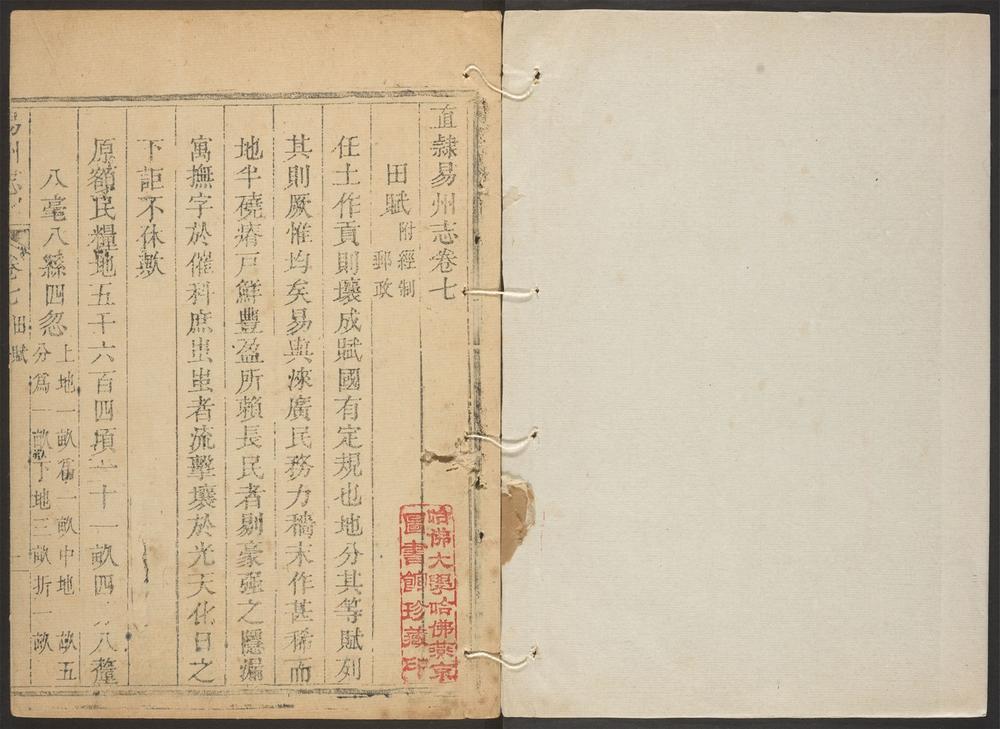 直隸易州志卷七
田賦 附經制
郵政
任土作貢則壤成賦國有定規也地分其等賦列
其則厥惟均矣易與淶廣民務力穡末作甚稀而
地半磽瘠戸鮮豐盈所賴長民者剔豪强之隱漏
寓撫字於催科庶蚩蚩者流擊壤於光天化日之
下詎不休歟
原額民糧地五千六百四頃 十一畝四 八釐
八毫八絲四忽 上地一畝 一畝中地 畝五
分爲一畝下地三畝折一畝
易州志 卷七 田賦
哈佛大學哈佛燕京
圖書館珍藏印